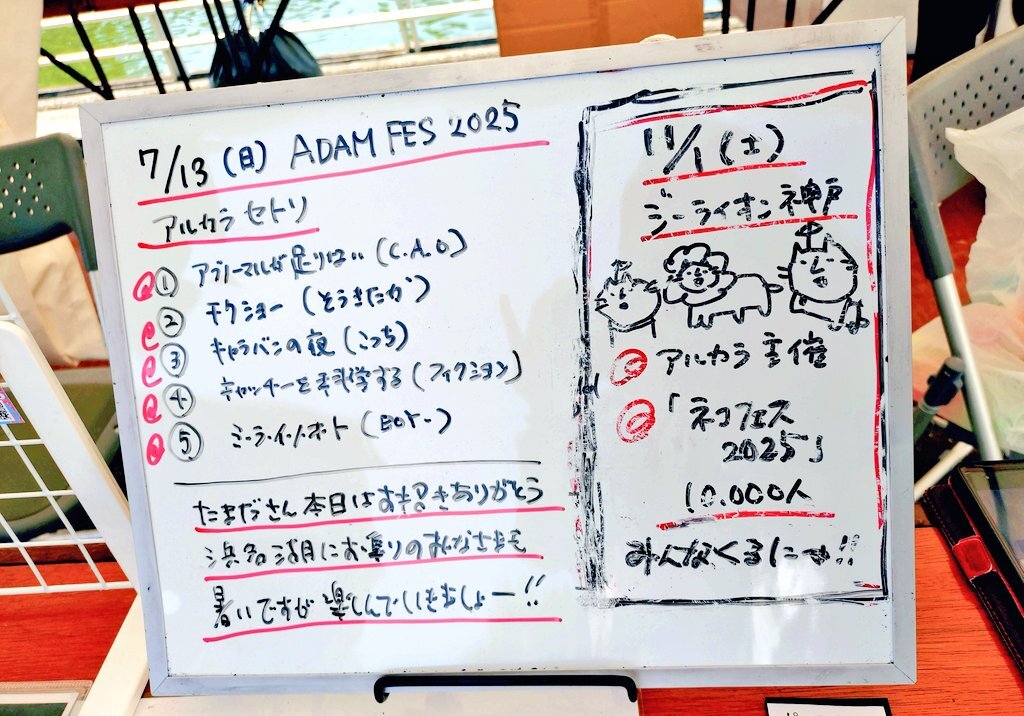 7/13 (日) ADAM FES 2025
アルカラ セトリ
① アブノーマルが足りない (C.A.O)
② チクショー (とうきたガ)
③ キャラバンの夜 (こっち)
④ キャッチーを科学する (フィクション)
⑤ ミ・ラ・イ・ノ・オ・ト
たまださん本日はお招きありがとう
浜名湖にお集りのみなさまも
暑いですが楽しんでいきましょー!!
11/1 (土)
ジーライオン神戸
アルカラ主催
「ネコフェス
2025」
10.000人
みんなくるにゃ!!